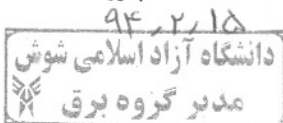 ۹۴٫۲٫۱۵
دانشگاه آزاد اسلامی شوش
مدیر گروه برق